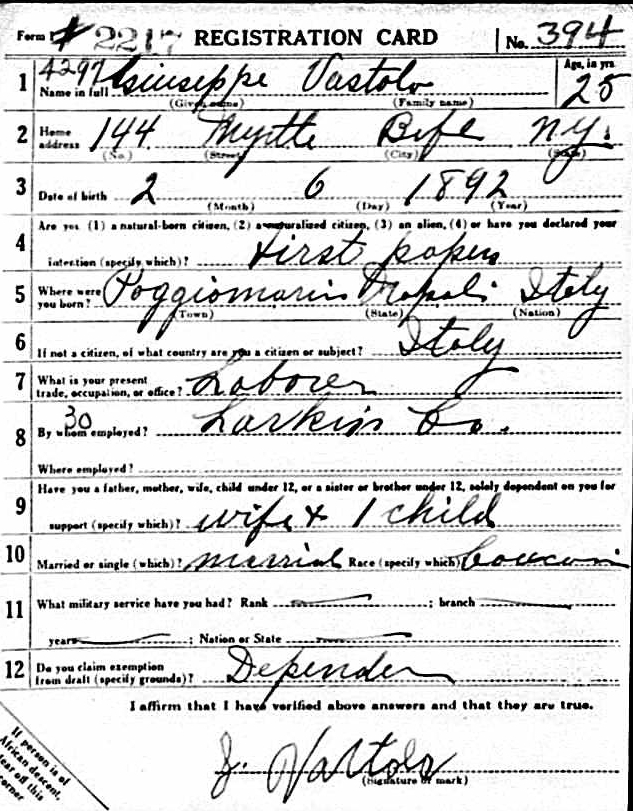 Form 1 # 2217 REGISTRATION CARD No. 394
1 4297 Name in full Giuseppe Vastolo Age, in yrs. 25
(Given name) (Family name)
2 Home address 144 Myrtle Bfl N.Y.
(No.) (Street) (City) (State)
3 Date of birth 2 6 1892
(Month) (Day) (Year)
4 Are you (1) a natural-born citizen, (2) a naturalized citizen, (3) an alien, (4) or have you declared your
intention (specify which)? First papers
5 Where were you born? Poggiomarin Napoli Italy
(Town) (State) (Nation)
6 If not a citizen, of what country are you a citizen or subject? Italy
7 What is your present trade, occupation, or office? Laborer
8 By whom employed? 30 Larkin Co.
Where employed?
9 Have you a father, mother, wife, child under 12, or a sister or brother under 12, solely dependent on you for
support (specify which)? wife + 1 child
10 Married or single (which)? married Race (specify which)
11 What military service have you had? Rank ; branch
years ; Nation or State
12 Do you claim exemption from draft (specify grounds)? Depender
I affirm that I have verified above answers and that they are true.
If person is of
African descent,
tear off this
corner
J. Vastolo
(Signature or mark)